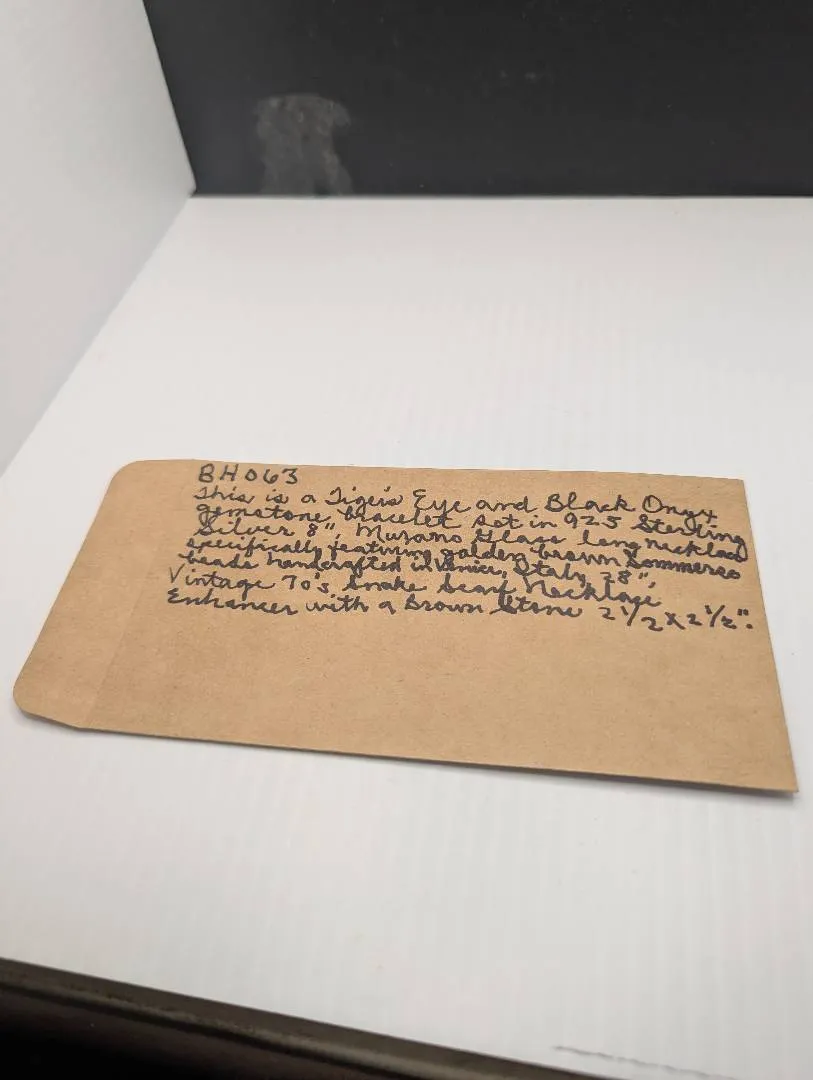 BH063
This is a Tiger's Eye and Black Onyx
gemstone bracelet set in 925 Sterling
Silver 8", Murano Glass long necklace
specifically featuring golden brown Sommerso
beads handcrafted in Venice, Italy 28",
Vintage 70's Snake Scarf Necklace
Enhancer with a Brown Stone 2 1/2 x 2 1/2".